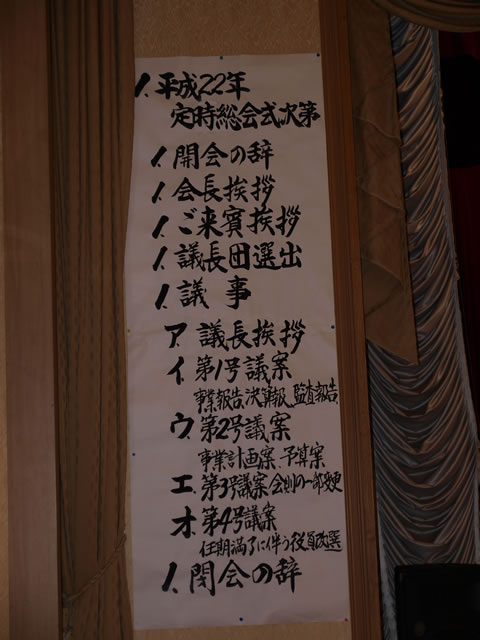 1. 平成22年
定時総会式次第
1. 開会の辞
1. 会長挨拶
1. ご来賓挨拶
1. 議長団選出
1. 議事
ア. 議長挨拶
イ. 第1号議案
事業報告、決算報、監査報告
ウ. 第2号議案
事業計画案、予算案
エ. 第3号議案 会則の一部変更
オ. 第4号議案
任期満了に伴う役員改選
1. 閉会の辞